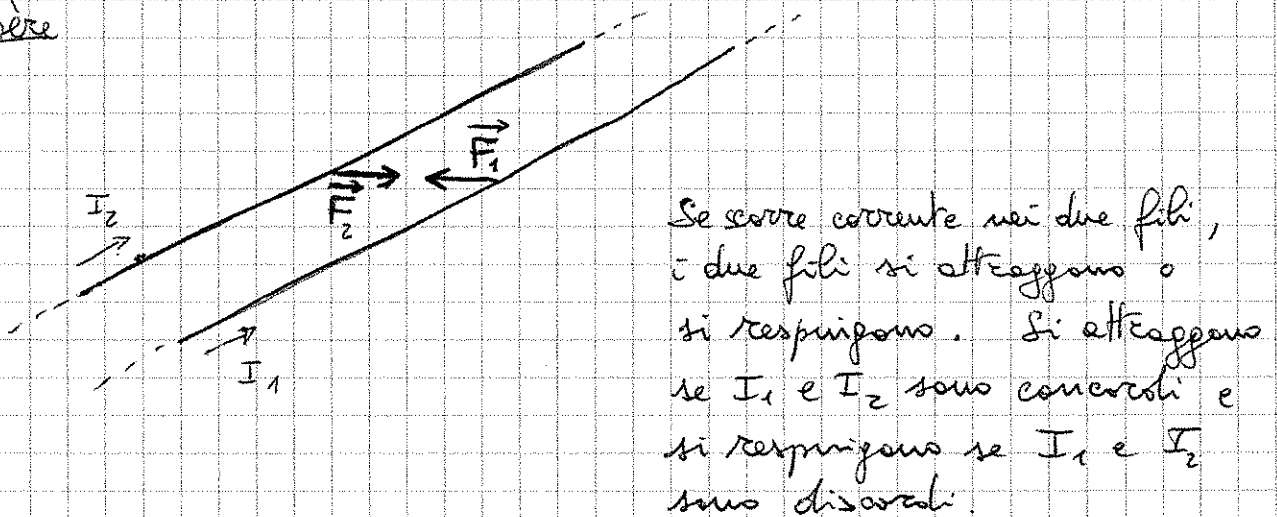 père
F₁
F₂
I₂
I₁
Se scorre corrente nei due fili,
i due fili si attraggono o
si respingono. Si attraggono
se I₁ e I₂ sono concordi e
si respingono se I₁ e I₂
sono discordi.